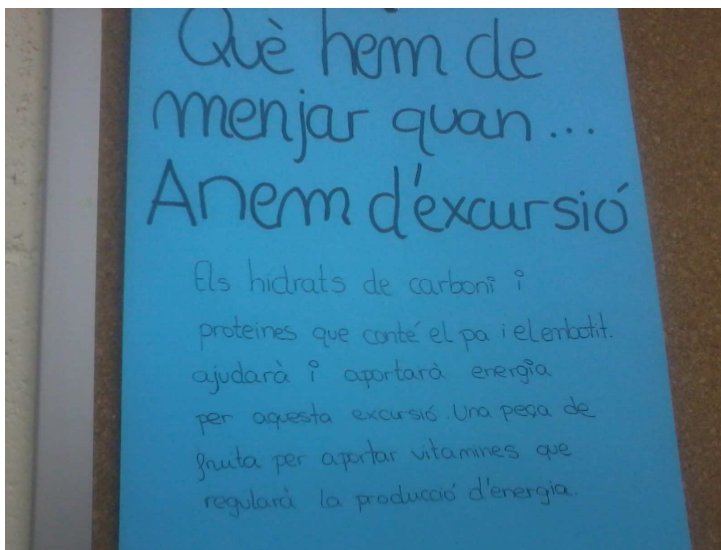 Què hem de
menjar quan...
Anem d'excursió
Els hidrats de carboni i
proteines que conté el pa i el embotit.
ajudarà i aportarà energia
per aquesta excursió. Una peça de
fruita per aportar vitamines que
regularà la producció d'energia.